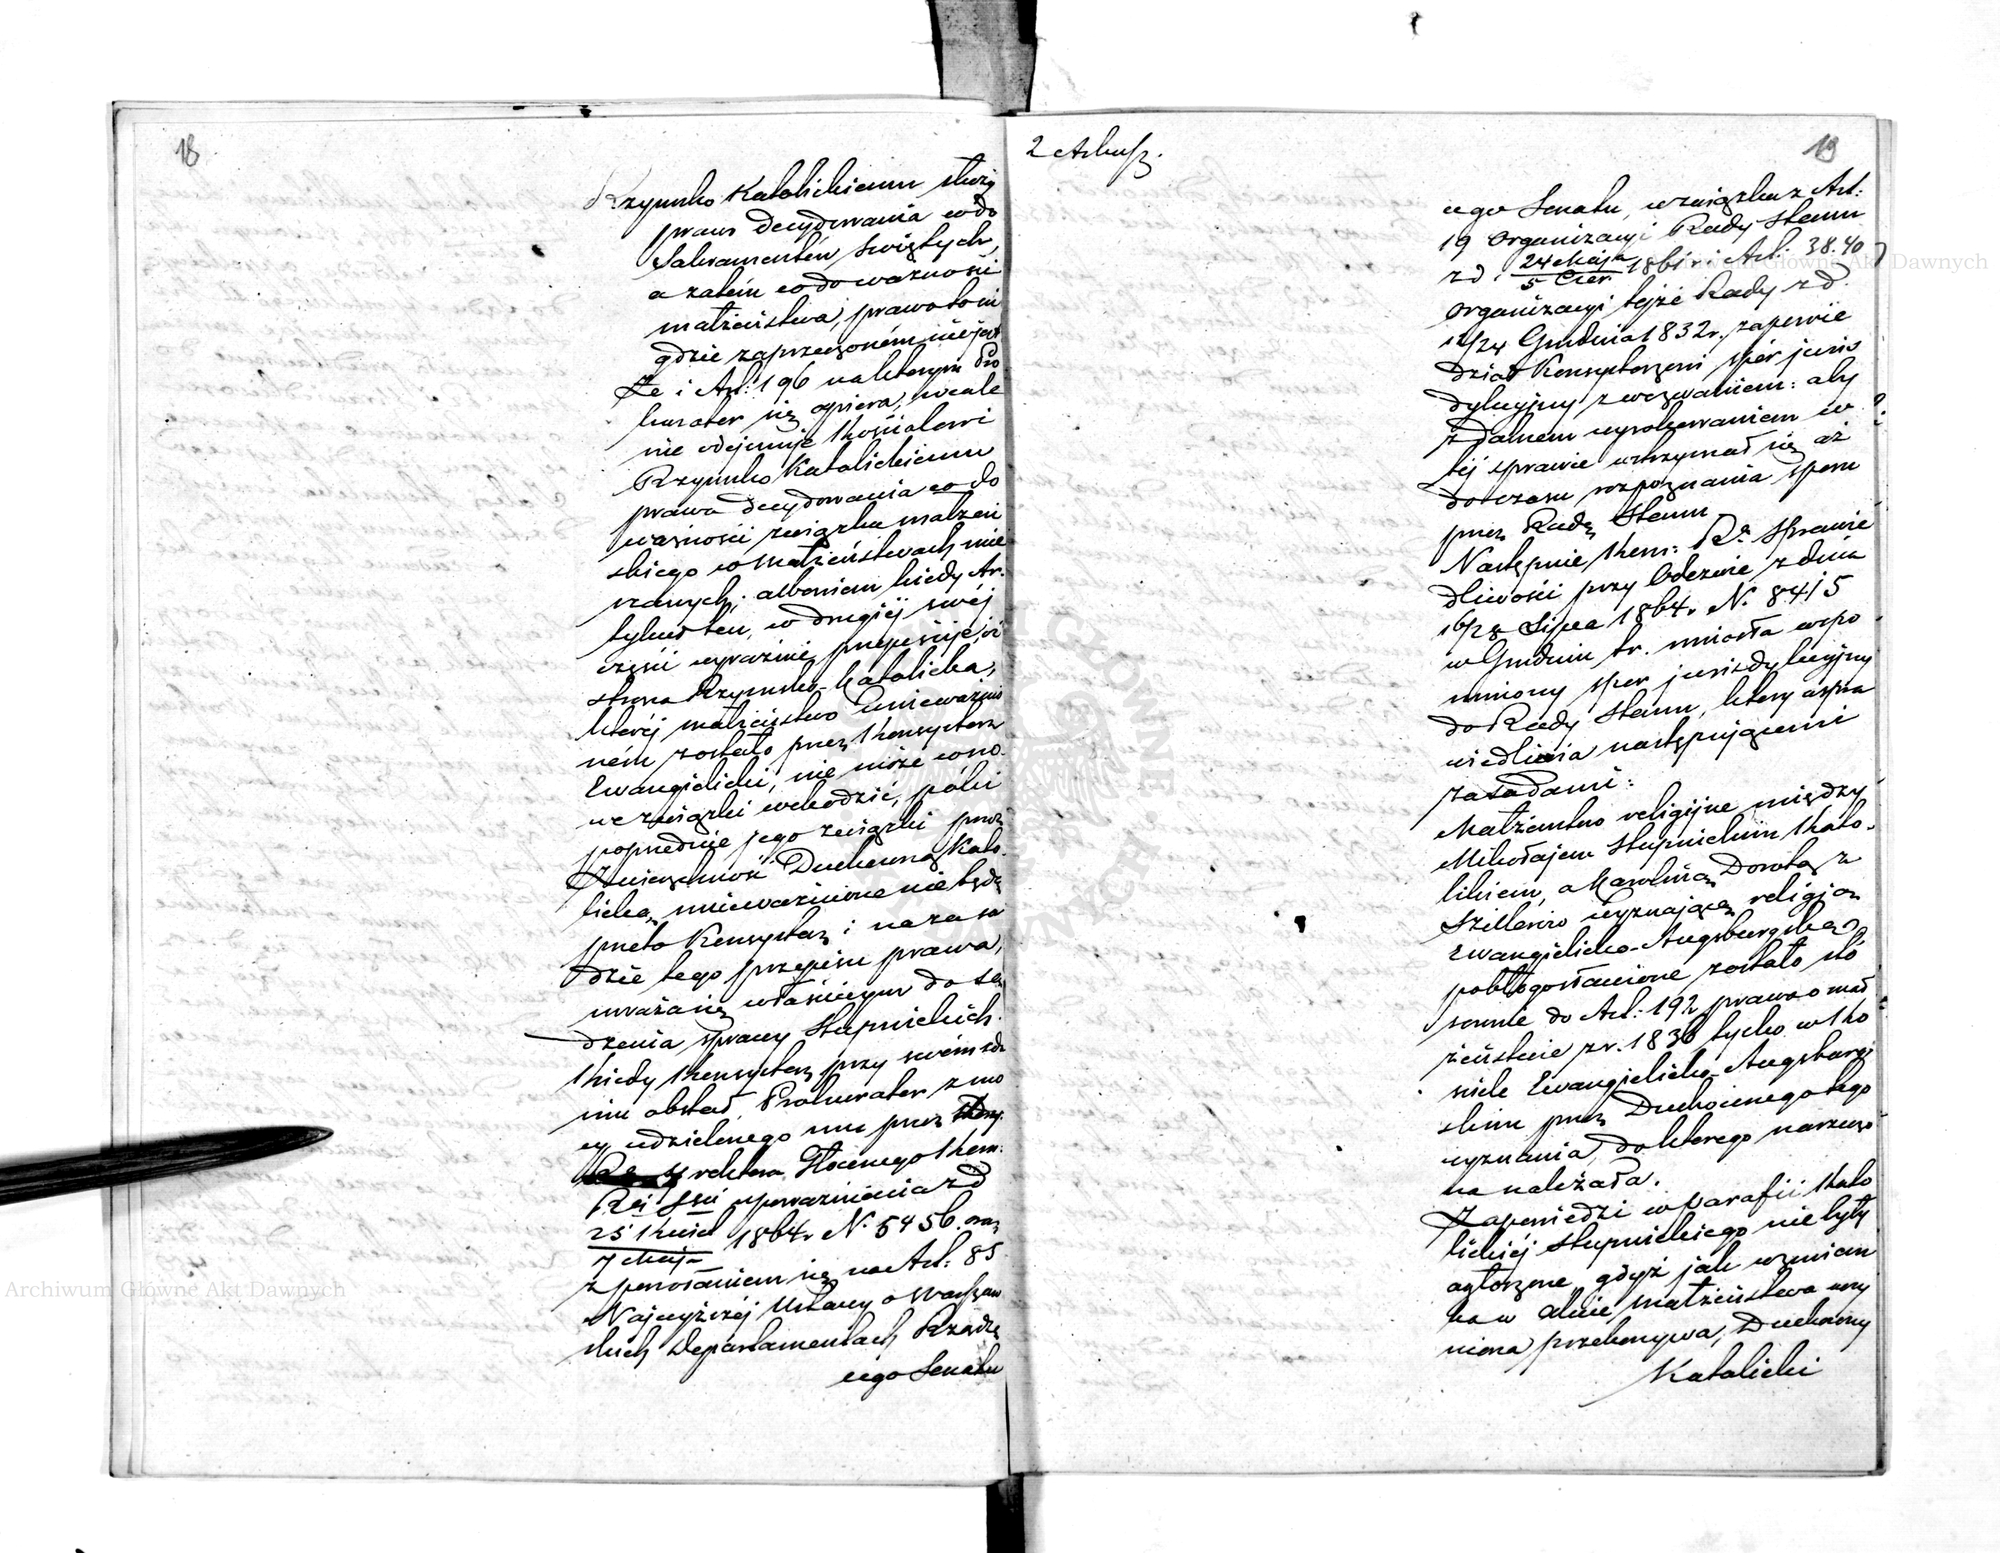 18
Rzymsko Katolickiemu służy
prawo decydowania co do
Sakramentów Świętych,
a zatem co do ważności
małżeństwa, prawo to ni
gdzie zaprzeczoném nie jest
Że i Art: 196 na którym Pro
kurator się opiera, wcale
nie odejmuje Kościołowi
Rzymsko Katolickiemu
prawa decydowania co do
ważności związku małżeń
skiego w Małżeństwach mie
szanych; albowiem kiedy Ar.
tykuł ten, w drugiéj swéj
części wyraźnie przepisuje, iż
strona Rzymsko-Katolicka,
któréj małżeństwo unieważnio
ném zostało przez Konsystorz
Ewangielicki, nie może w no
we związki wchodzić, póki
poprzednie jego związki przez
Zwierzchność Duchowną Kato
licką, unieważnione nie będą
przeto Konsystorz i na zasa
dzie tego przepisu prawa,
uważa się właściwym do są
dzenia sprawy Słupnickich.
Kiedy Konsystorz przy swém zda
niu obstał, Prokurator z mo
cy udzielonego mu przez
rektora Głównego Kom:
Rz: Spr: upoważnienia z d
25 Kwiet 1864 r N. 5456. oraz
7 Maja
z powołaniem się na Art: 85
Najwyższéj Ustawy o Warszaw
skich Departamentach Rządzą
cego Senatu
2 Arkusz.
19
cego Senatu, w związku z Art:
19 Organizacyi Rady Stanu
z d. 24 Maja 1861 r. i Art. 38. 40
5 Czer
Organizacyi tejże Rady z d.
12/24 Grudnia 1832 r., zapowie
dział Konsystorzowi spór juris
dykcyjny z wezwaniem: aby
z dalszem wyrokowaniem w
téj sprawie wstrzymał się aż
do czasu rozpoznania sporu
przez Radę Stanu
Następnie Kom: Rz. Sprawie
dliwości przy Odezwie z dnia
16/28 Lipca 1864 r. N. 8415
w Grudniu t.r. wniosła wspo
mniony spór jurisdykcyjny
do Rady Stanu, który uspra
wiedliwia następującemi
zasadami:
Małżeństwo religijne między
Mikołajem Słupnickim Kato-
likiem, a Karoliną Dorotą z
Szillerów wyznającą religją
Ewangielicko-Augsburgską
pobłogosławione zostało sto
sownie do Art: 192 prawa o mał
żeństwie z r. 1836 tylko w Ko
ściele Ewangielicko-Augsburg
skim przez Duchownego tego
wyznania, do którego narzeczo
na należała.
Zapowiedzi w parafii Kato
lickiéj Słupnickiego nie były
ogłoszone, gdyż jak wzmian
ka w akcie małżeństwa uczy
niona przekonywa, Duchowny
Katolicki
Archiwum Główne Akt Dawnych
Archiwum Główne Akt Dawnych